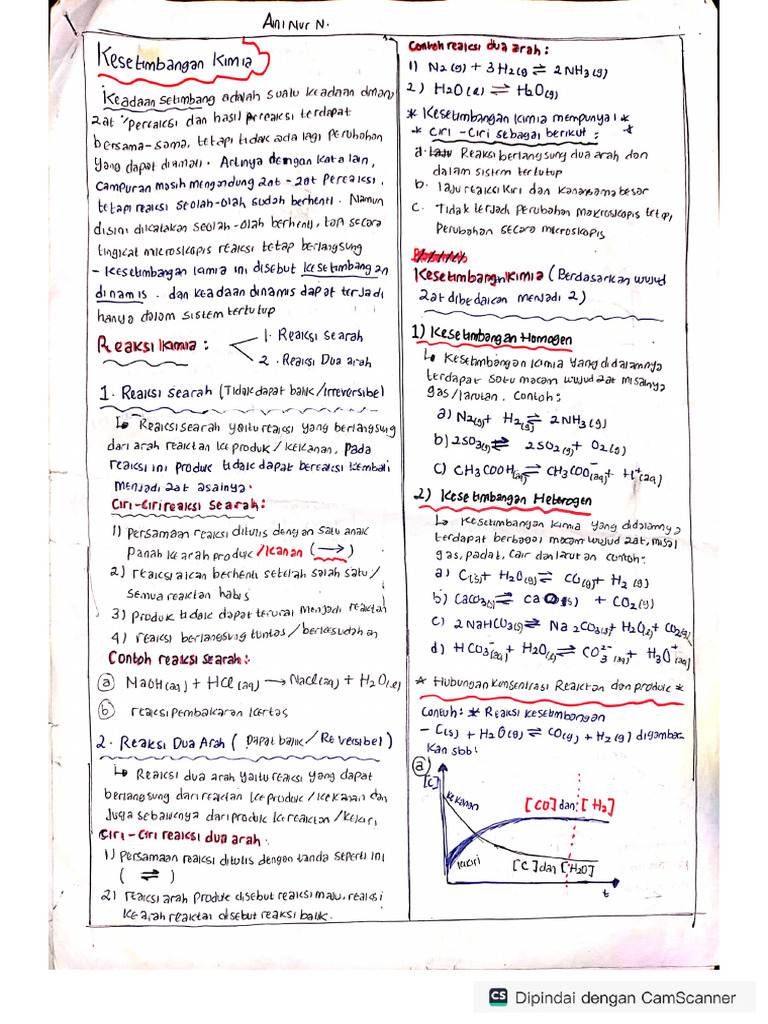 Ani Nur N.
Kesetimbangan Kimia
Keadaan setimbang adalah suatu keadaan dimana
zat pereaksi dan hasil pereaksi terdapat
bersama-sama, tetapi tidak ada lagi perubahan
yang dapat diamati. Artinya dengan kata lain,
campuran masih mengandung zat-zat pereaksi,
tetapi reaksi seolah-olah sudah berhenti. Namun
disini dikatakan seolah-olah berhenti, tapi secara
tingkat microskopis reaksi tetap berlangsung
- Kesetimbangan kimia ini disebut kesetimbangan
dinamis. dan keadaan dinamis dapat terjadi
hanya dalam sistem tertutup
Reaksi kimia :
1. Reaksi Searah
2. Reaksi Dua arah
1. Reaksi searah (Tidak dapat balik/Irreversibel
↳ Reaksi searah yaitu reaksi yang berlangsung
dari arah reaktan ke produk / kekanan, Pada
reaksi ini produk tidak dapat bereaksi kembali
menjadi zat asalnya.
Ciri-ciri reaksi searah :
1) Persamaan reaksi ditulis dengan satu anak
Panah ke arah produk /kanan (→)
2) reaksi akan berhenti setelah salah satu/
semua reaktan habis
3) Produk tidak dapat terurai menjadi reaktan
4) reaksi berlangsung tuntas / berkesudahan
Contoh reaksi searah :
a NaOH(aq) + HCl(aq) → NaCl(aq) + H2O(l)
b reaksi pembakaran kertas
2. Reaksi Dua Arah ( Dapat balik / Reversibel )
↳ Reaksi dua arah yaitu reaksi yang dapat
berlangsung dari reaktan ke produk / ke kanan dan
Juga sebaliknya dari produk ke reaktan / kekiri
Ciri - Ciri reaksi dua arah :
1) Persamaan reaksi ditulis dengan tanda seperti ini
( ⇌ )
2) reaksi arah produk disebut reaksi maju, reaksi
ke arah reaktan disebut reaksi balik.
Contoh reaksi dua arah :
1) N2(g) + 3H2(g) ⇌ 2NH3(g)
2) H2O(l) ⇌ H2O(g)
* Kesetimbangan kimia mempunyai *
* Ciri - Ciri sebagai berikut : *
a. Reaksi berlangsung dua arah dan
dalam sistem tertutup
b. laju reaksi kiri dan kanan sama besar
c. Tidak terjadi perubahan makroskopis tetapi,
Perubahan secara microskopis
Kesetimbangan Kimia ( Berdasarkan wujud
zat dibedakan menjadi 2 )
1) Kesetimbangan Homogen
↳ Kesetimbangan kimia yang didalamnya
terdapat satu macam wujud zat misalnya
gas / larutan. Contoh :
a) N2(g) + H2(g) ⇌ 2NH3(g)
b) 2SO3(g) ⇌ 2SO2(g) + O2(g)
c) CH3COOH(aq) ⇌ CH3COO-(aq) + H+(aq)
2) Kesetimbangan Heterogen
↳ Kesetimbangan kimia yang didalamnya
terdapat berbagai macam wujud zat, misal
gas, padat, Cair dan larutan contoh :
a) C(s) + H2O(g) ⇌ CO(g) + H2(g)
b) CaCO3(s) ⇌ CaO(s) + CO2(g)
c) 2NaHCO3(s) ⇌ Na2CO3(s) + H2O(g) + CO2(g)
d) HCO3-(aq) + H2O(l) ⇌ CO3 2-(aq) + H3O+(aq)
* Hubungan Konsentrasi Reaktan dan produk *
Contoh : * Reaksi kesetimbangan
- C(s) + H2O(g) ⇌ CO(g) + H2(g) digambar
kan sbb :
a
[C]
kekanan
[CO] dan [H2]
kekiri
[C] dan [H2O]
t
CS Dipindai dengan CamScanner